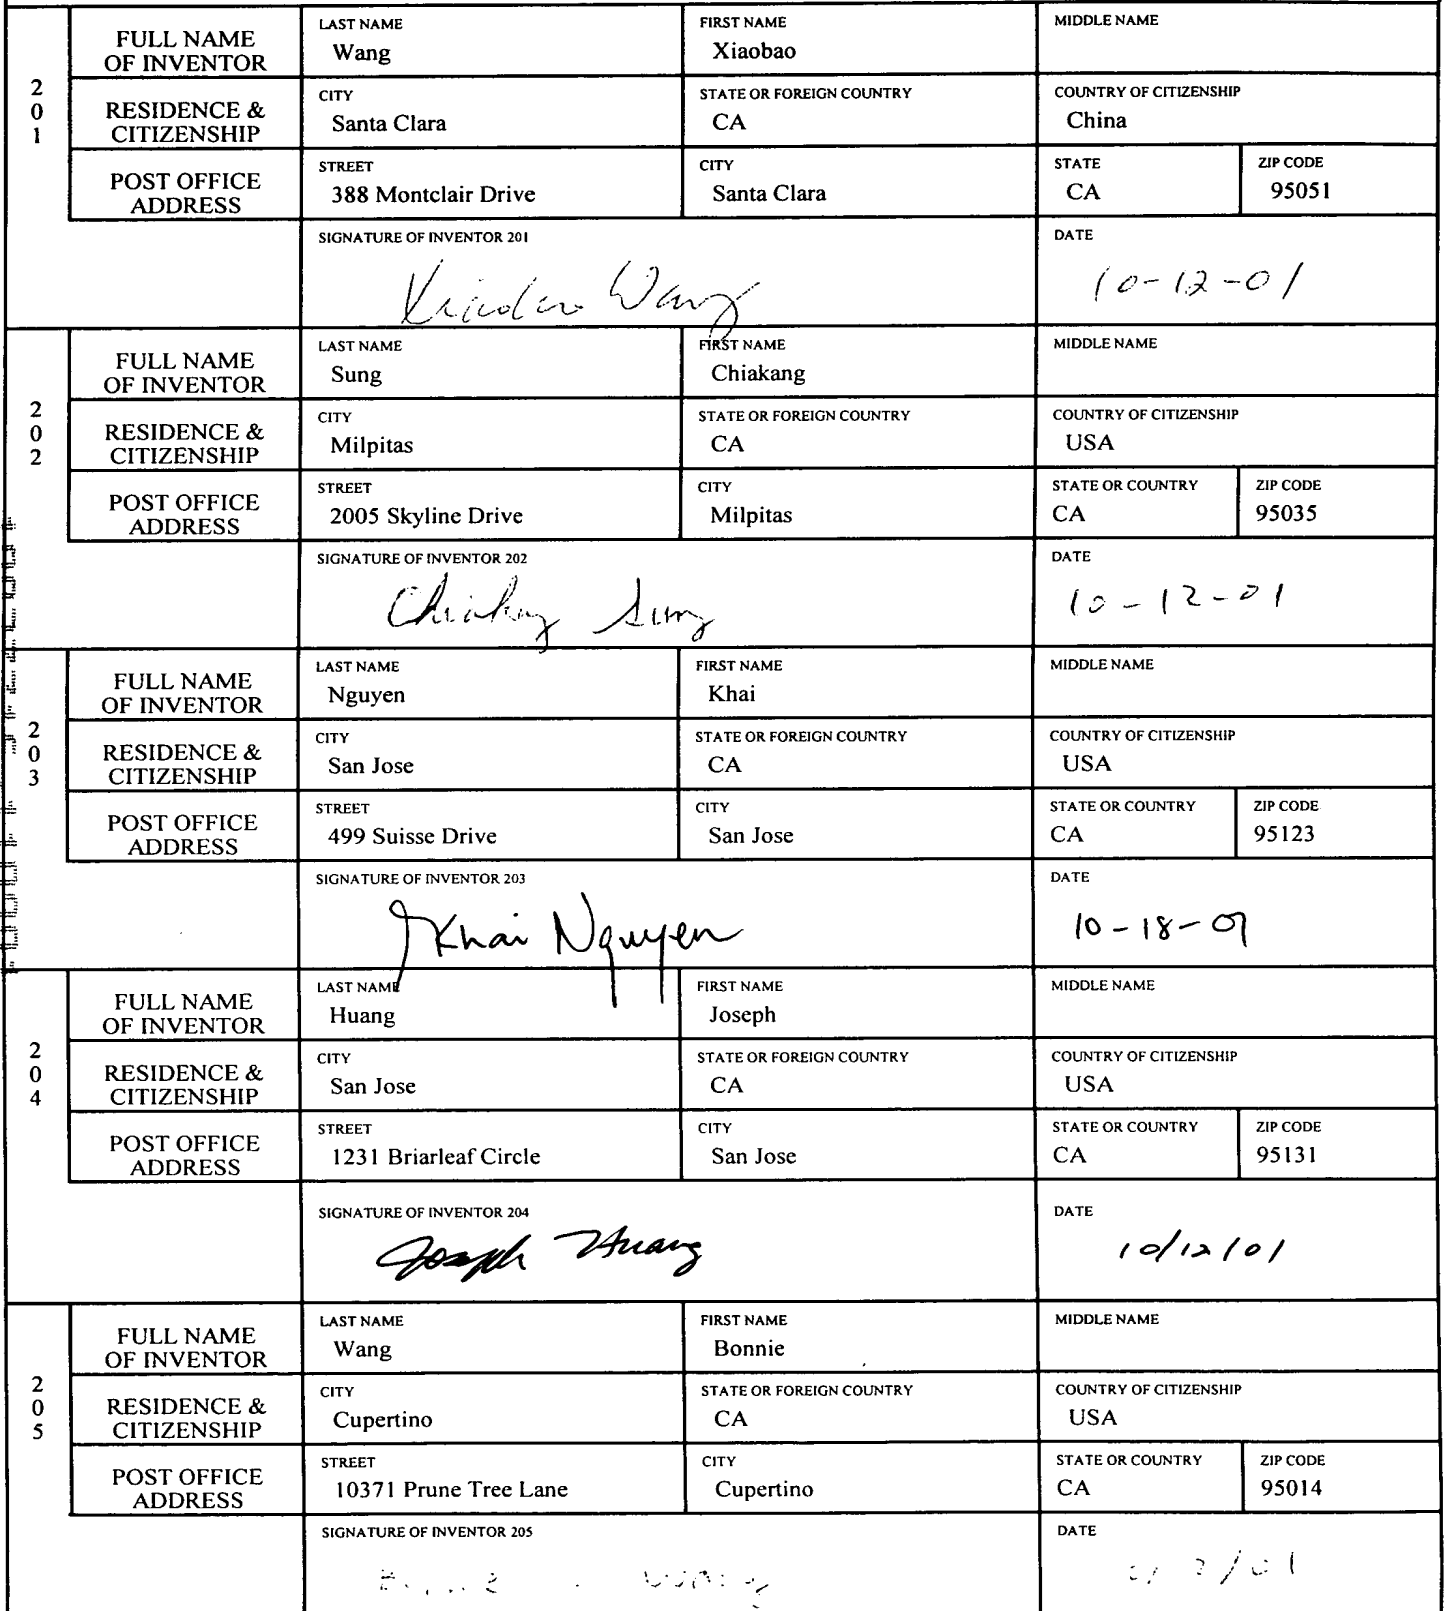 201
FULL NAME OF INVENTOR
LAST NAME
Wang
FIRST NAME
Xiaobao
MIDDLE NAME
RESIDENCE & CITIZENSHIP
CITY
Santa Clara
STATE OR FOREIGN COUNTRY
CA
COUNTRY OF CITIZENSHIP
China
POST OFFICE ADDRESS
STREET
388 Montclair Drive
CITY
Santa Clara
STATE
CA
ZIP CODE
95051
SIGNATURE OF INVENTOR 201
Xiaobao Wang
DATE
10-12-01
202
FULL NAME OF INVENTOR
LAST NAME
Sung
FIRST NAME
Chiakang
MIDDLE NAME
RESIDENCE & CITIZENSHIP
CITY
Milpitas
STATE OR FOREIGN COUNTRY
CA
COUNTRY OF CITIZENSHIP
USA
POST OFFICE ADDRESS
STREET
2005 Skyline Drive
CITY
Milpitas
STATE OR COUNTRY
CA
ZIP CODE
95035
SIGNATURE OF INVENTOR 202
Chiakang Sung
DATE
10-12-01
203
FULL NAME OF INVENTOR
LAST NAME
Nguyen
FIRST NAME
Khai
MIDDLE NAME
RESIDENCE & CITIZENSHIP
CITY
San Jose
STATE OR FOREIGN COUNTRY
CA
COUNTRY OF CITIZENSHIP
USA
POST OFFICE ADDRESS
STREET
499 Suisse Drive
CITY
San Jose
STATE OR COUNTRY
CA
ZIP CODE
95123
SIGNATURE OF INVENTOR 203
Khai Nguyen
DATE
10-18-01
204
FULL NAME OF INVENTOR
LAST NAME
Huang
FIRST NAME
Joseph
MIDDLE NAME
RESIDENCE & CITIZENSHIP
CITY
San Jose
STATE OR FOREIGN COUNTRY
CA
COUNTRY OF CITIZENSHIP
USA
POST OFFICE ADDRESS
STREET
1231 Briarleaf Circle
CITY
San Jose
STATE OR COUNTRY
CA
ZIP CODE
95131
SIGNATURE OF INVENTOR 204
Joseph Huang
DATE
10/12/01
205
FULL NAME OF INVENTOR
LAST NAME
Wang
FIRST NAME
Bonnie
MIDDLE NAME
RESIDENCE & CITIZENSHIP
CITY
Cupertino
STATE OR FOREIGN COUNTRY
CA
COUNTRY OF CITIZENSHIP
USA
POST OFFICE ADDRESS
STREET
10371 Prune Tree Lane
CITY
Cupertino
STATE OR COUNTRY
CA
ZIP CODE
95014
SIGNATURE OF INVENTOR 205
Wang
DATE